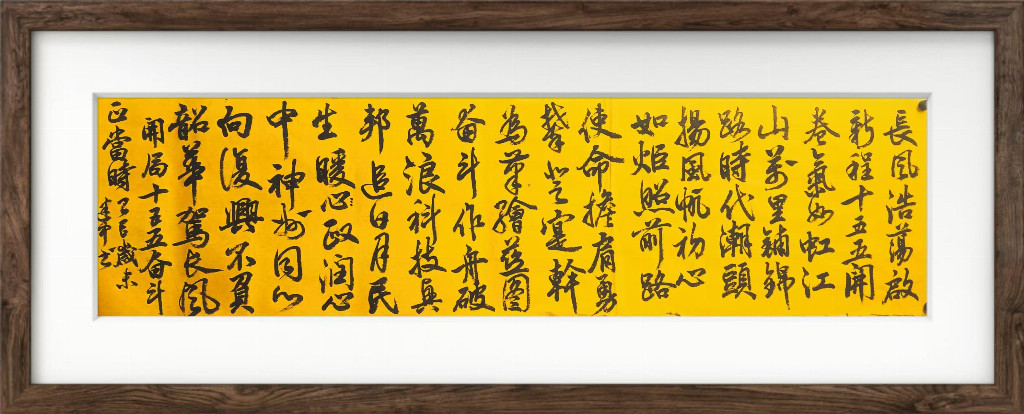 長風浩蕩啟
新程十五五開
卷氣如虹江
山萬里鋪錦
路時代潮頭
揚風帆初心
如炬照前路
使命擔肩勇
攀登寔幹
為筆繪蓝圖
奋斗作舟破
萬浪科技興
邦追日月民
生暖心政润心
中神州同心
向復興不負
韶華駕長風
開局十五五奋斗
正當時 乙巳歲末